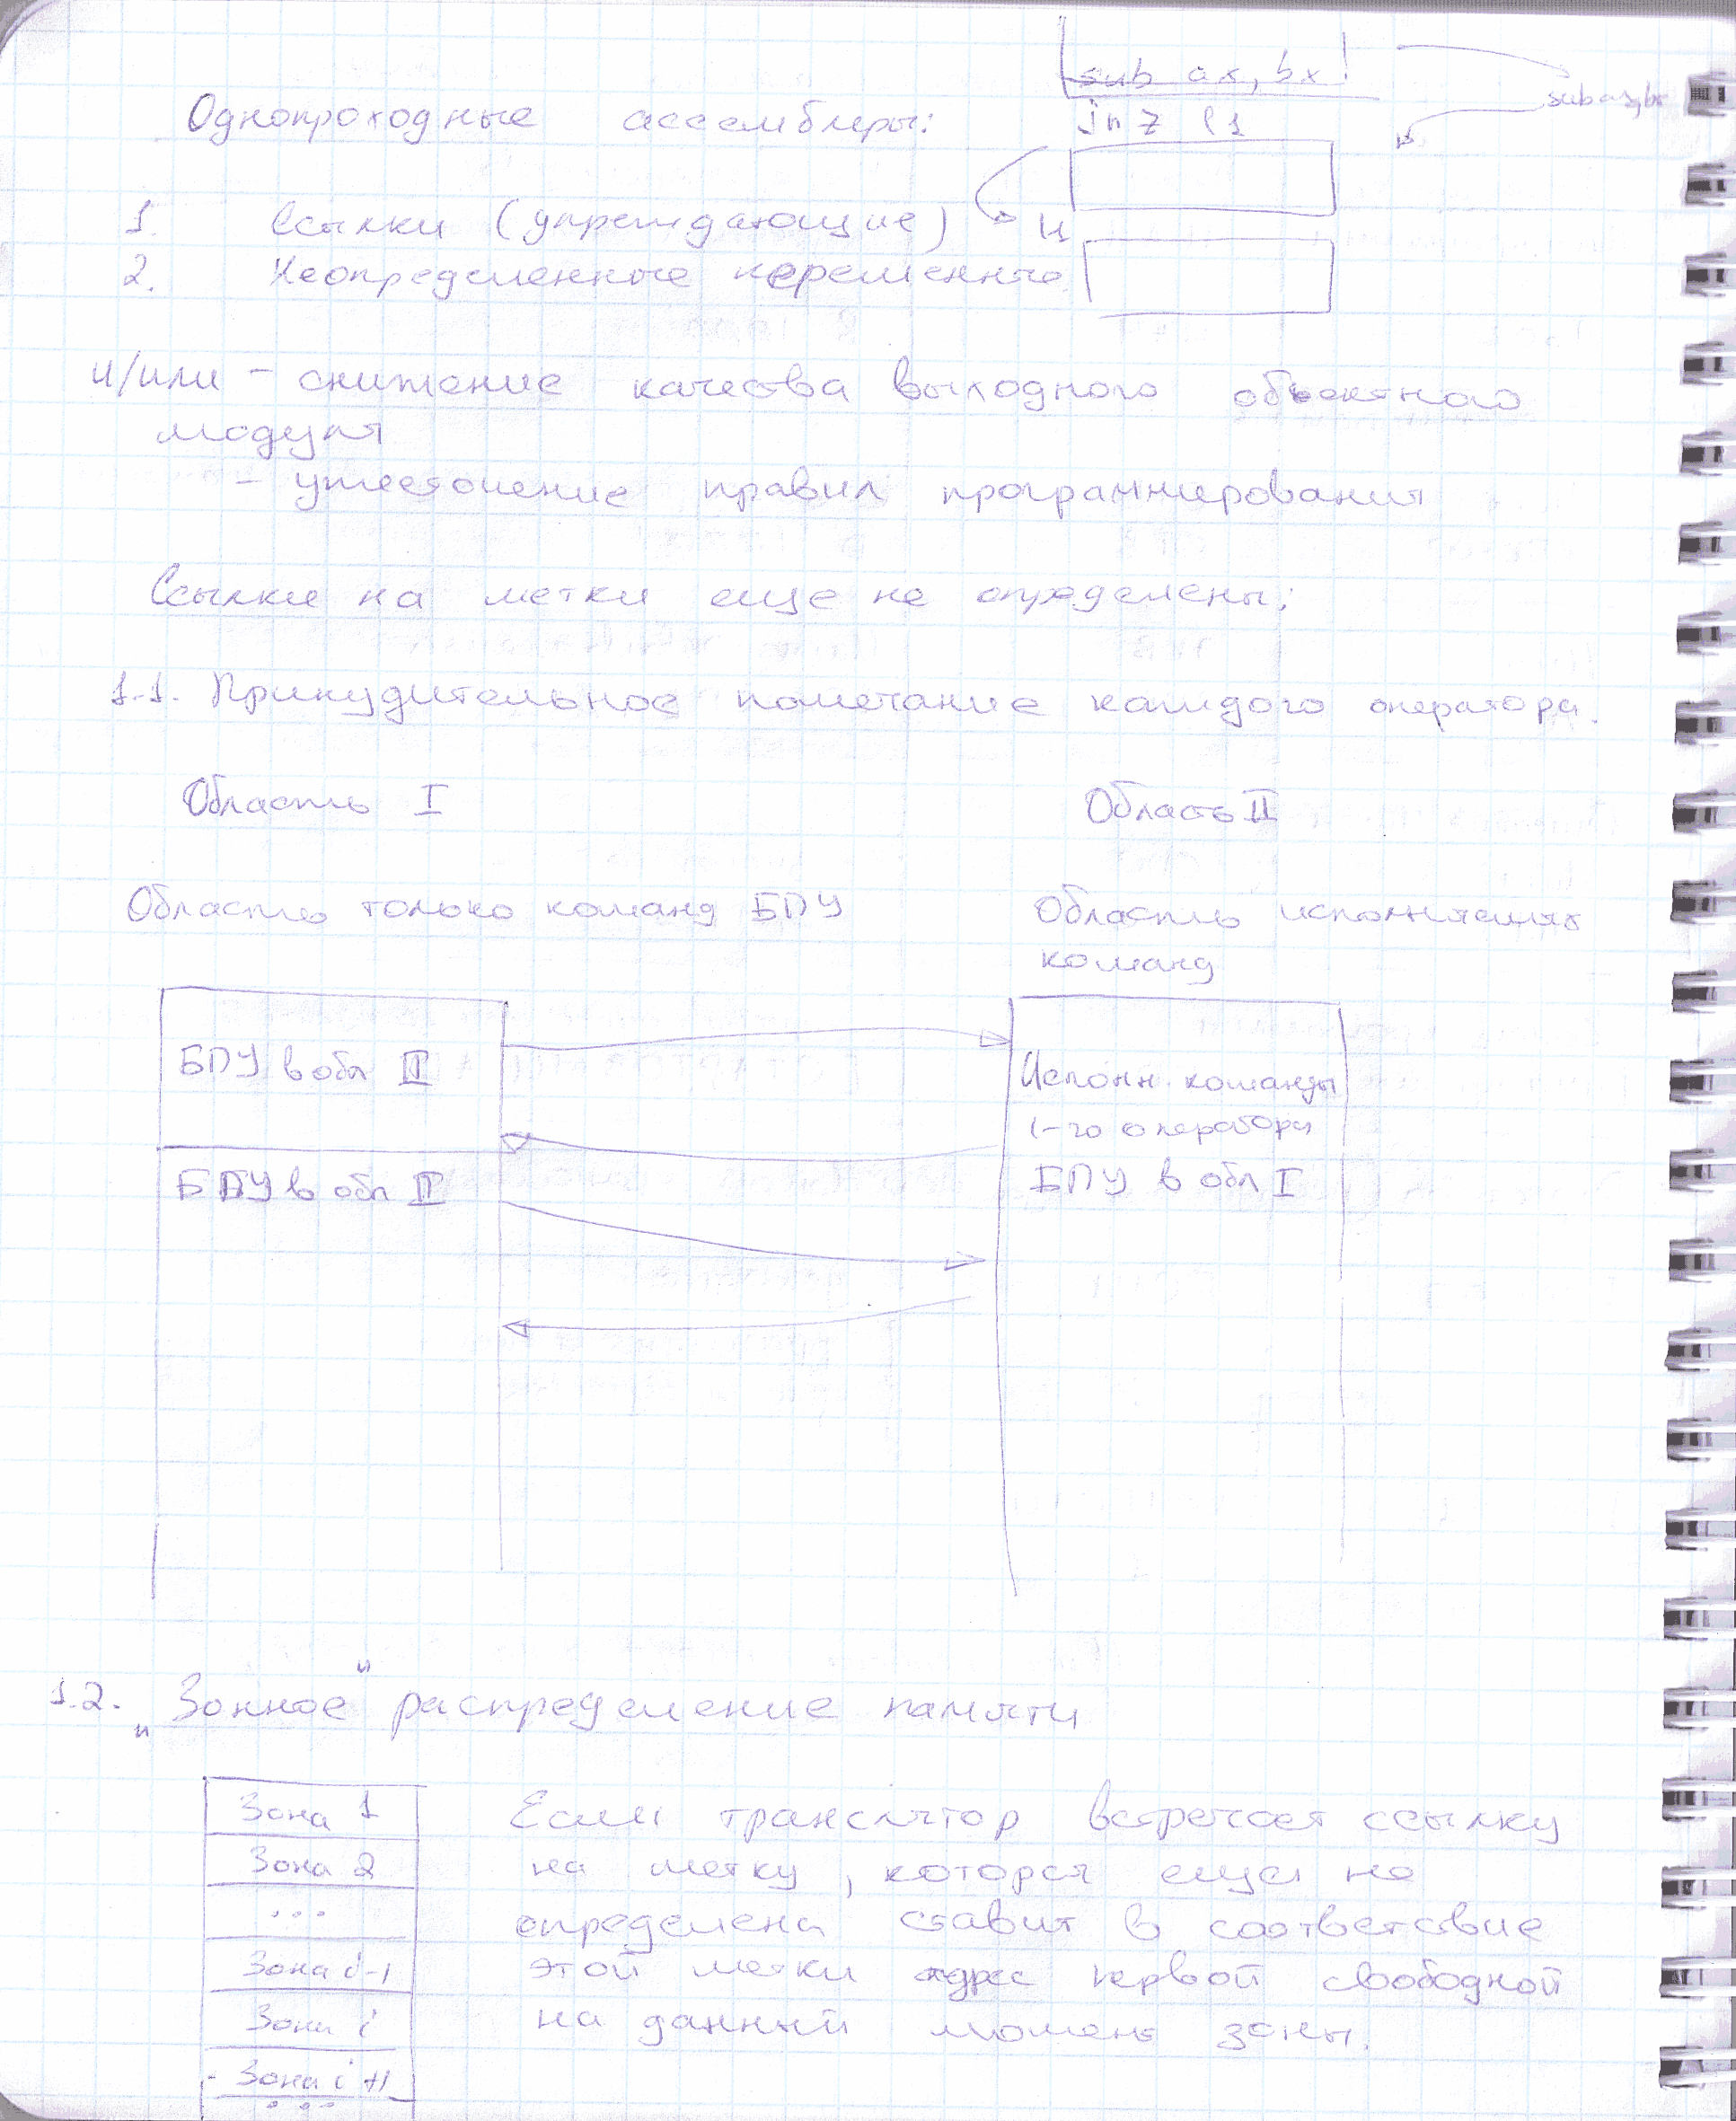 sub ax, bx
sub ax, bx
Однопроходные ассемблеры:
jnz l1
1. Ссылки (упреждающие)
2. Неопределенные переменные
и/или - снижение качества выходного объектного
модуля
- ужесточение правил программирования
Ссылки на метки еще не определены:
1.1. Принудительное помечание каждого оператора.
Область I
Область II
Область только команд БПУ
Область исполняемых
команд
БПУ в обл II
Исполн. команды
1-го оператора
БПУ в обл II
БПУ в обл I
1.2. "Зонное" распределение памяти
Зона 1
Зона 2
...
Зона i-1
Зона i
Зона i+1
...
Если транслятор встречает ссылку
на метку, которая еще не
определена ставит в соответсвие
этой метки адрес первой свободной
на данный момент зоны.